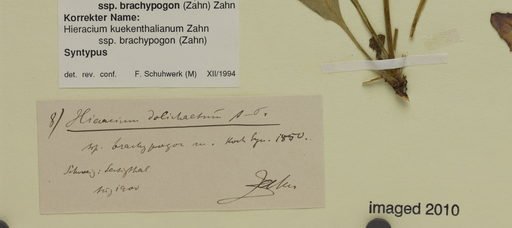 ssp. brachypogon (Zahn) Zahn
Korrekter Name:
Hieracium kuekenthalianum Zahn
ssp. brachypogon (Zahn)
Syntypus
det. rev. conf. F. Schuhwerk (M) XII/1994
8) Hieracium dolichaetum A-T.
ssp. brachypogon m. Koch Syn. 1850.
Schweiz: Sertigthal
Aug 1900
Zahn
imaged 2010